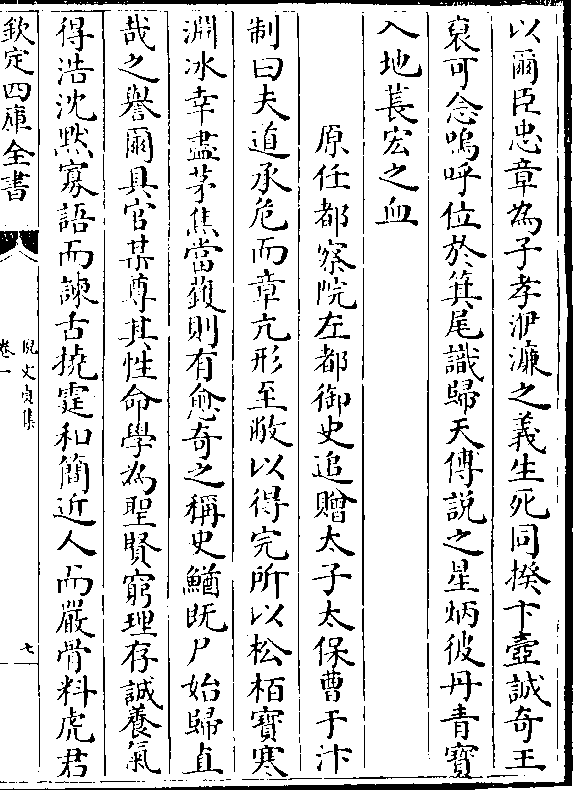 以爾臣忠章為子孝洢濂之義生死同揆卞壼誠奇王
裒可念嗚呼位於箕尾識歸天傅説之星炳彼丹青寶
入地萇宏之血
原任都察院左都御史追贈太子太保曹于汴
制曰夫道承危而章亢形至敝以得完所以松栢寶寒
淵冰幸盡茅焦當蘏則有愈奇之稱史鰌既尸始歸直
哉之譽爾具官某尊其性命學為聖賢窮理存誠養氣
得浩沈黙寡語而諫舌撓霆和簡近人而嚴骨料虎君
欽定四庫全書
倪文貞集
卷一
七